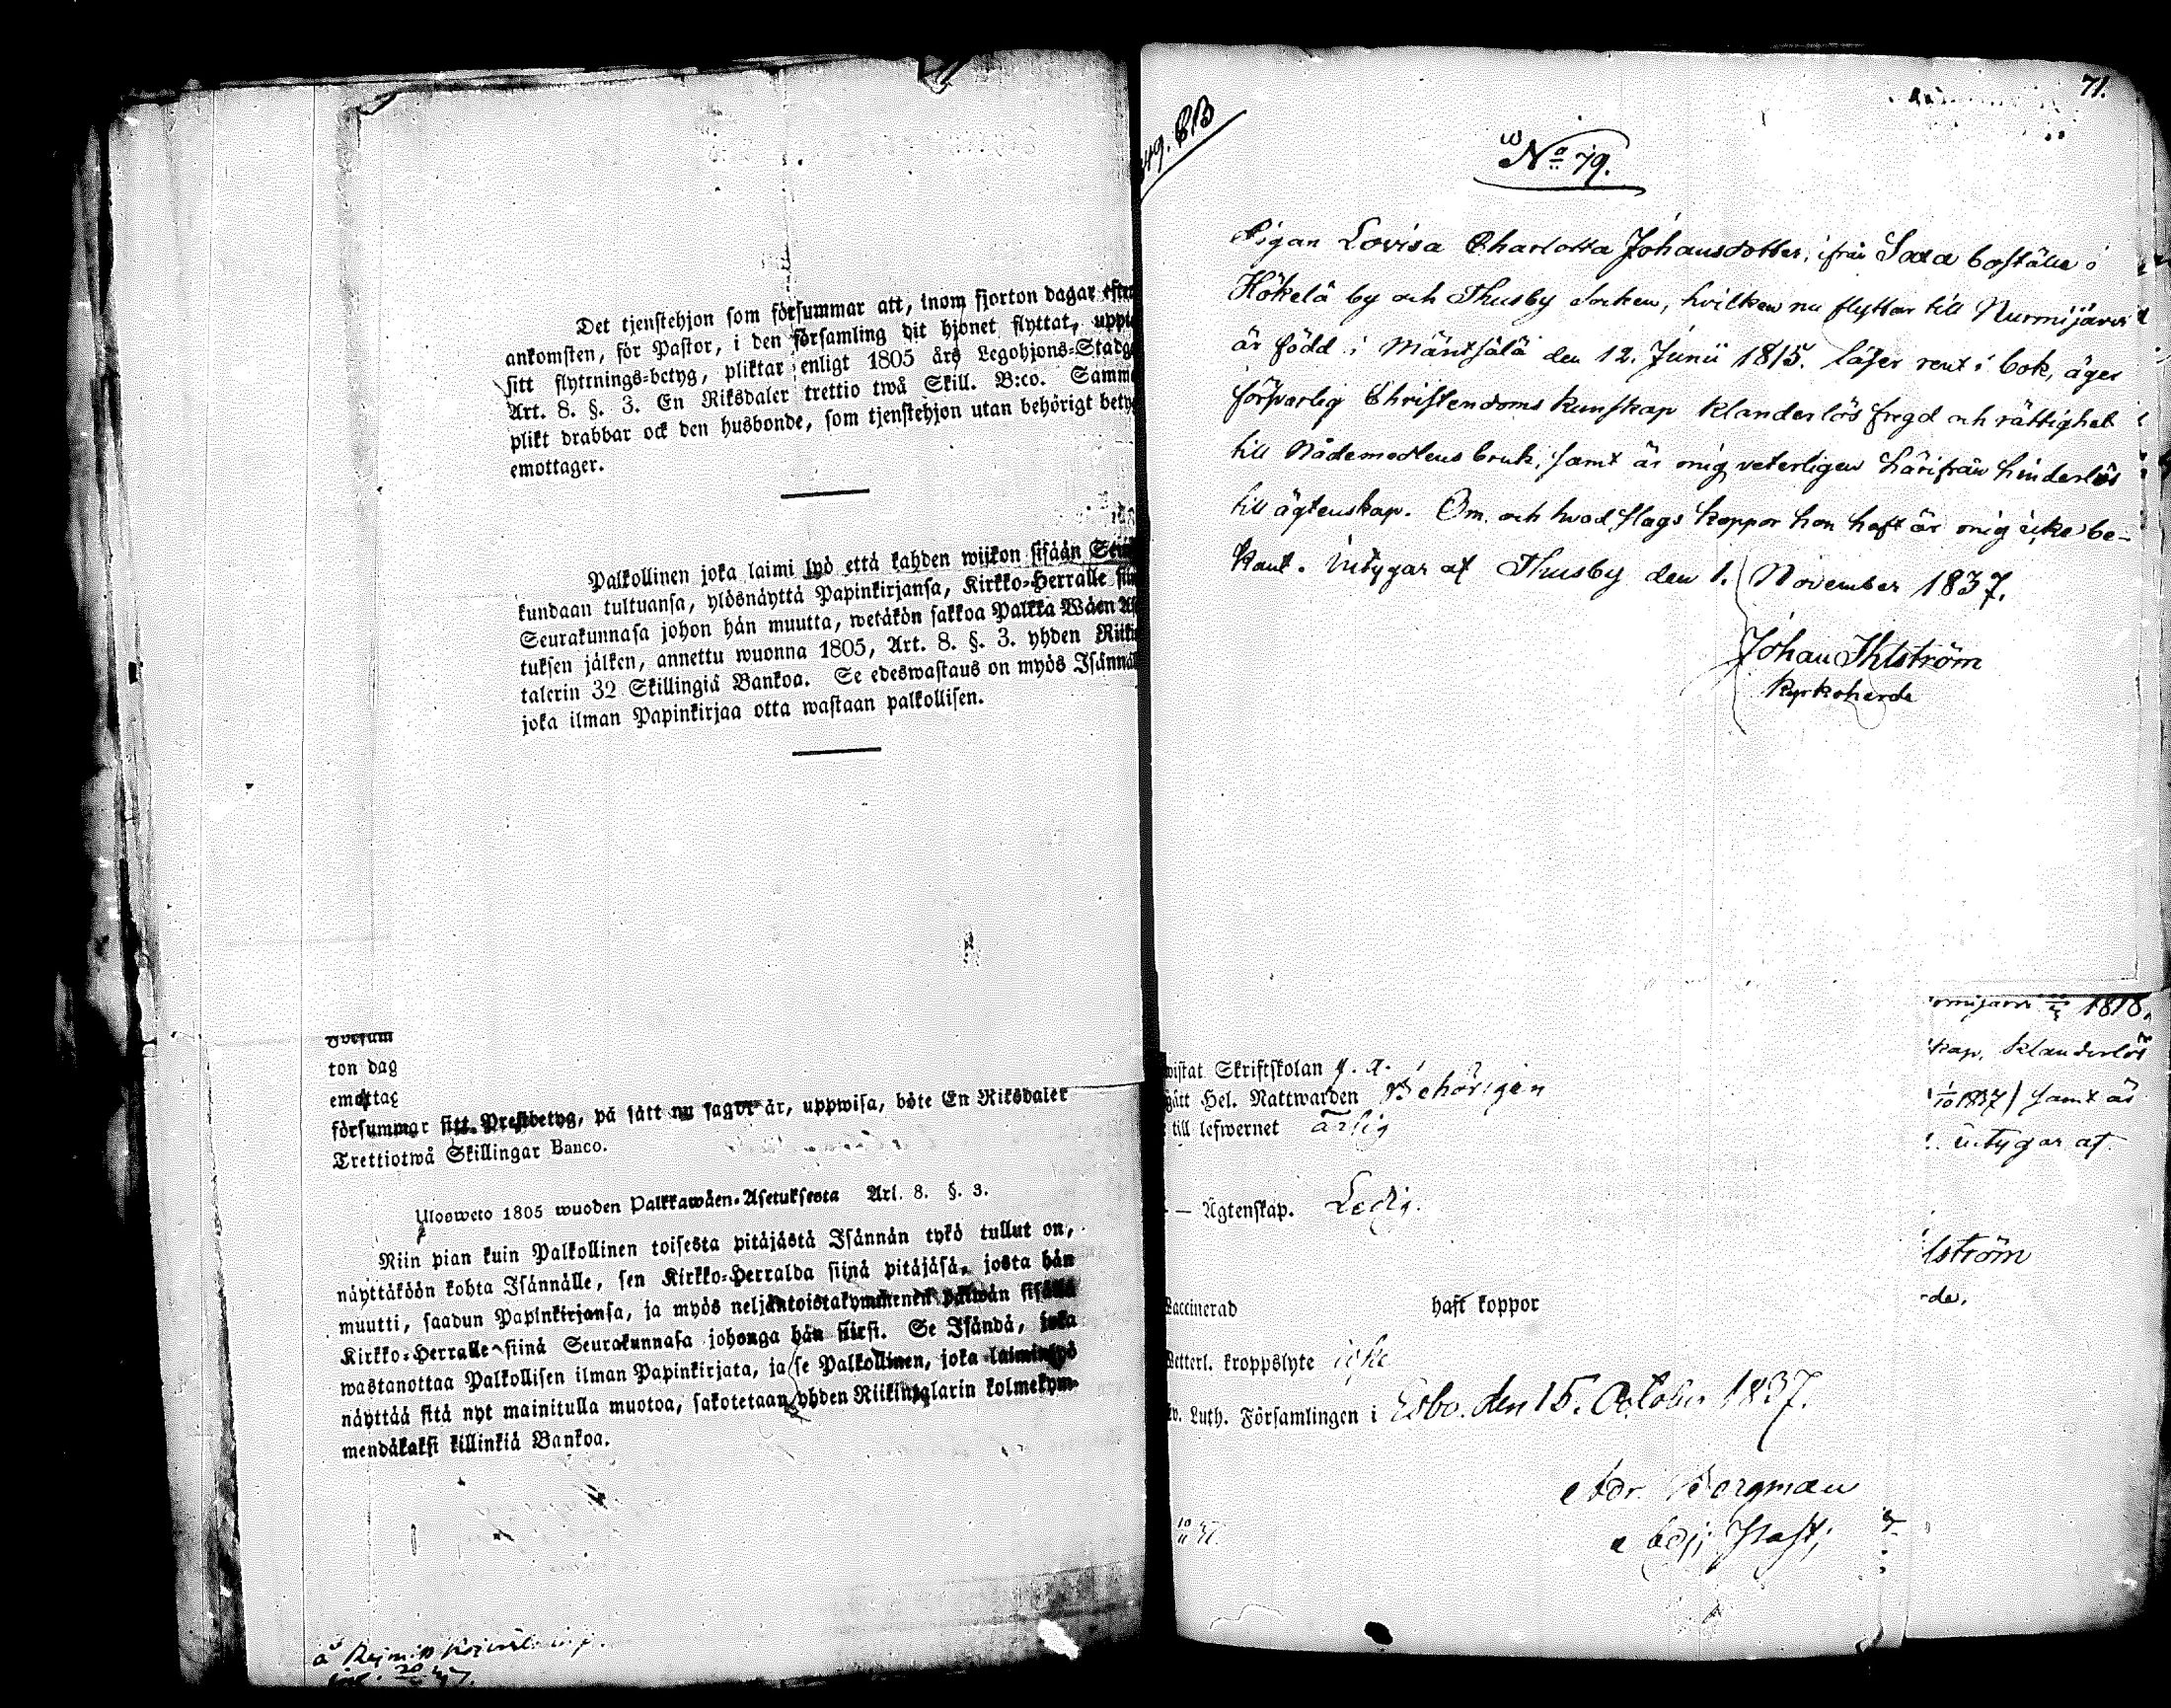 Det tjenstehjon som försummar att, inom fjorton dagar efter
ankomsten, för Pastor, i den församling dit hjonet flyttat, uppte
sitt flyttnings-betyg, pliktar enligt 1805 års Legohjons-Stadg
Art. 8. §. 3. En Riksdaler trettio twå Skill. B:co. Samma
plikt drabbar ock den husbonde, som tjenstehjon utan behörigt bety
emottager.
Palkollinen joka laimi lyö että kahden wiikon sisään Seu
kundaan tultuansa, ylösnäyttä Papinkirjansa, Kirkko-Herralle sii
Seurakunnasa johon hän muutta, wetäkön sakkoa Palkka Wäen As
tuksen jälken, annettu wuonna 1805, Art. 8. §. 3. yhden Riiki
talerin 32 Skillingiä Bankoa. Se edeswastaus on myös Isännäl
joka ilman Papinkirjaa otta wastaan palkollisen.
försum
ton dag
emottag
försummar sitt Prestbetyg, på sätt nu sagdt är, uppwisa, böte En Riksdaler
Trettiotwå Skillingar Banco.
Ulosweto 1805 wuoden Palkkawäen-Asetuksesta Art. 8. §. 3.
Niin pian kuin Palkollinen toisesta pitäjästä Isännän tykö tullut on,
näyttäköön kohta Isännälle, sen Kirkko-Herralda siinä pitäjäsä, josta hän
muutti, saadun Papinkirjansa, ja myös neljäntoistakymmenen päiwän sisällä
Kirkko-Herralle siinä Seurakunnasa johonga hän siirsi. Se Isändä, joka
wastanottaa Palkollisen ilman Papinkirjata, ja se Palkollinen, joka laiminlyö
näyttää sitä nyt mainitulla muotoa, sakotetaan yhden Riikintalarin kolmekym-
mendäkaksi killinkiä Bankoa.
71.
49. BB
No 79.
Pigan Lovisa Charlotta Johansdotter, ifrån Saxa boställe i
Hökelä by och Thusby Socken, hvilken nu flyttar till Nurmijärvi
är född i Mäntsälä den 12. Junii 1815. läser rent i bok, äger
försvarlig Christendoms kunskap klanderlös fregd och rättighet
till Nådemedlens bruk, samt är mig veterligen härifrån hinderlös
till ägtenskap. Om och hvad slags koppor hon haft är mig icke be-
kant. Intygar af Thusby den 1. November 1837.
Johan Ihlström
Kyrkoherde
1818.
skap, klanderlös
1/10 1837) samt är
intygar af
lström
de.
wistat Skriftskolan
gått Hel. Nattwarden Behörigen
till lefwernet ärlig
— Ägtenskap. Ledig.
Vaccinerad haft koppor
Wetterl. kroppslyte icke
Ev. Luth. Församlingen i Esbo. den 15. October 1837.
Adr. Bergman
Adj: Past;